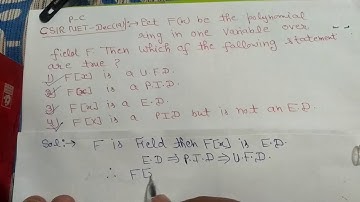 P-C
CSIR NET-Dec(21):- Let F[x] be the polynomial
ring in one variable over
field F. Then which of the following statement
are true ?
1) F[x] is a U.F.D.
2) F[x] is a P.I.D.
3) F[x] is a E.D.
4) F[x] is a P.I.D but is not an E.D.
Sol:- F is Field then F[x] is E.D.
E.D ⇒ P.I.D ⇒ U.F.D.
∴ F[